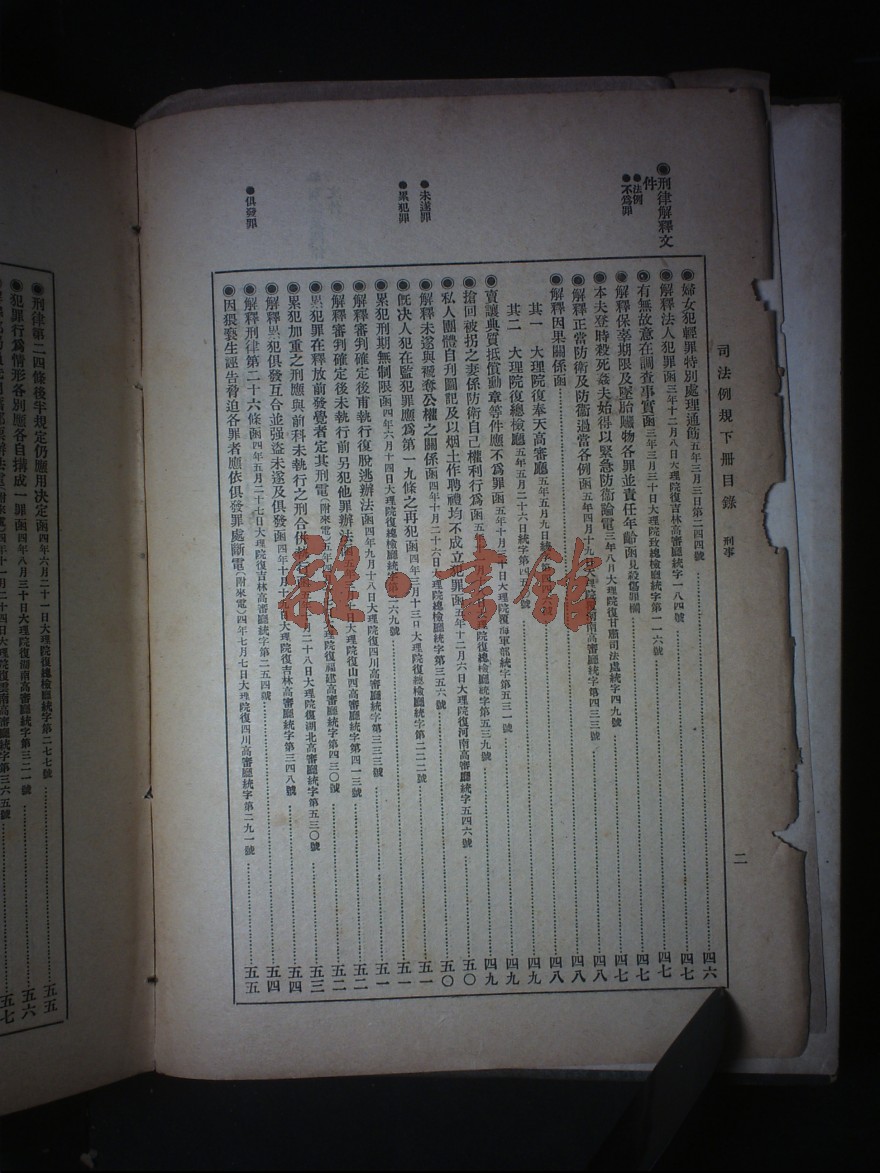 司法例規下冊目錄 刑事 二
◉刑律解釋文件
●法例
●不爲罪
●未遂罪
●累犯罪
●俱發罪
◉婦女犯輕罪特別處理通飭五年三月三日第二四四號 四六
◉解釋法人犯罪函三年十二月八日大理院復吉林高審廳統字一八四號 四七
◉有無故意在調查事實函三年三月三十日大理院致總檢廳統字第一一六號 四七
◉解釋保辜期限及墜胎贓物各罪並責任年齡函見殺傷罪欄 四七
◉本夫登時殺死姦夫始得以緊急防衞論電三年八月大理院復甘肅司法處統字四九號 四七
◉解釋正當防衞及防衞過當各例函五年四月十九日大理院 南高審廳統字第四三三號 四八
◉解釋因果關係函 四八
其一 大理院復奉天高審廳五年五月九日統 四九
其二 大理院復總檢廳五年五月二十六日統字第四五 號 四九
◉賣讓典質抵償勳章等件應不爲罪函五年十月三十日大理院覆海軍部統字第五三一號 四九
◉搶回被拐之妻係防衞自己權利行爲函五 大理院復總檢廳統字第五三九號 五〇
◉私人團體自刋圖記及以烟土作聘禮均不成立犯罪函五年十二月六日大理院復河南高審廳統字五四六號 五〇
◉解釋未遂與褫奪公權之關係函四年十月二十六日大理院復總檢廳統字第三五六號 五一
◉旣決人犯在監犯罪應爲第一九條之再犯函四年三月十三日大理院復總檢廳統字第二二二號 五一
◉累犯刑期無制限函四年六月十四日大理院復總檢廳統字第二六九號 五一
◉解釋審判確定後甫執行復脫逃辦法函四年九月十八日大理院復四川高審廳統字第三三三號 五二
◉解釋審判確定後未執行前另犯他罪辦法函五 大理院復山西高審廳統字第四一三號 五二
◉累犯罪在釋放前發覺者定其刑電（附來電）五年 大理院復福建高審廳統字第四三〇號 五三
◉累犯加重之刑應與前科未執行之刑合併執行函五 月二十八日大理院復湖北高審廳統字第五三〇號 五四
◉解釋累犯俱發互合並强盜未遂及俱發函四年十月十九日大理院復吉林高審廳統字第三四八號 五四
◉解釋刑律第二十六條函四年五月二十七日大理院復吉林高審廳統字第二五四號 五五
◉因猥褻生誣告脅迫各罪者應依俱發罪處斷電（附來電）四年七月七日大理院復四川高審廳統字第二九一號 五五
◉刑律第二四條後半規定仍應用決定函四年六月二十一日大理院復總檢廳統字第二七七號 五五
◉犯罪行爲情形各別應各自搆成一罪函四年 大理院復湖南高審廳統字第三二一號 五六
五七
雜·書館